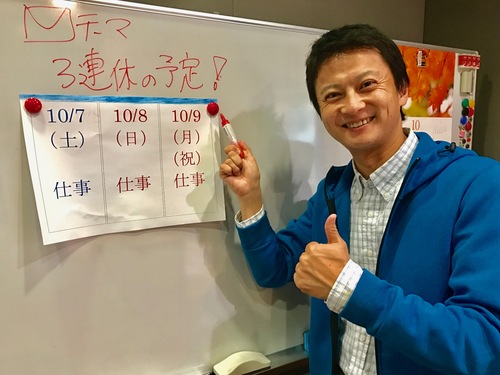 テーマ
3連休の予定!
10/7 10/8 10/9
(土) (日) (月)
(祝)
仕事 仕事 仕事
10